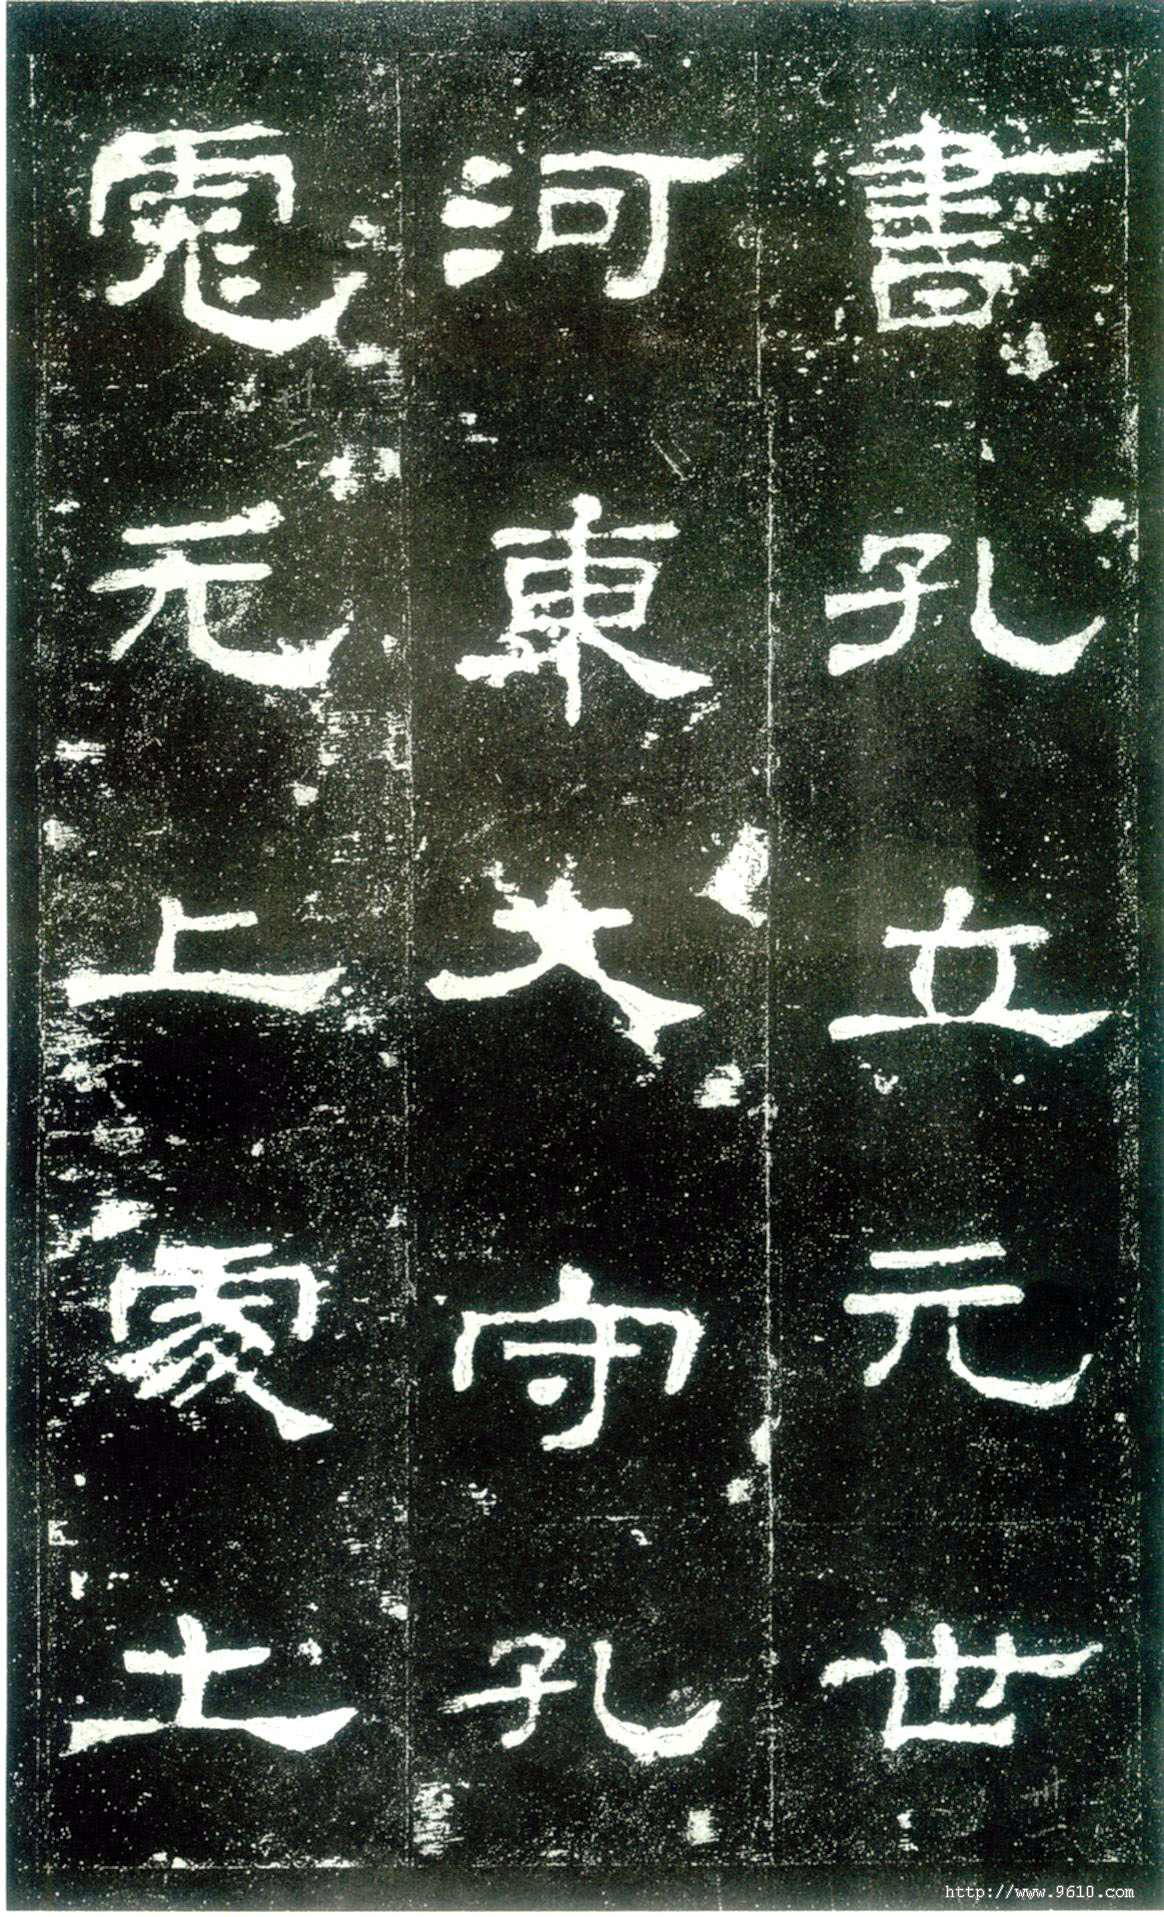 書孔立元世
河東大守孔
彪元上處士
http://www.9610.com